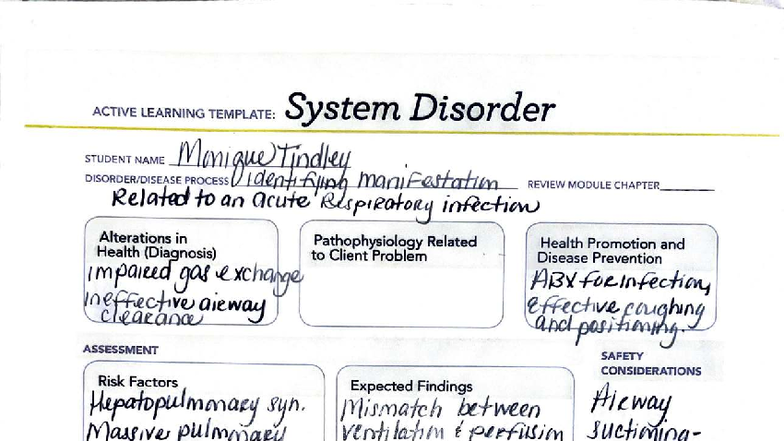 ACTIVE LEARNING TEMPLATE: System Disorder
STUDENT NAME Monique Tindley
DISORDER/DISEASE PROCESS identifying manifestation REVIEW MODULE CHAPTER
Related to an acute Respiratory infection
Alterations in
Health (Diagnosis)
impaired gas exchange
ineffective airway
clearance
Pathophysiology Related
to Client Problem
Health Promotion and
Disease Prevention
ABX for infection,
Effective coughing
and positioning.
ASSESSMENT
SAFETY
CONSIDERATIONS
Risk Factors
Hepatopulmonary syn.
Massive pulmonary
Expected Findings
Mismatch between
ventilation & perfusion
Airway
suctioning-